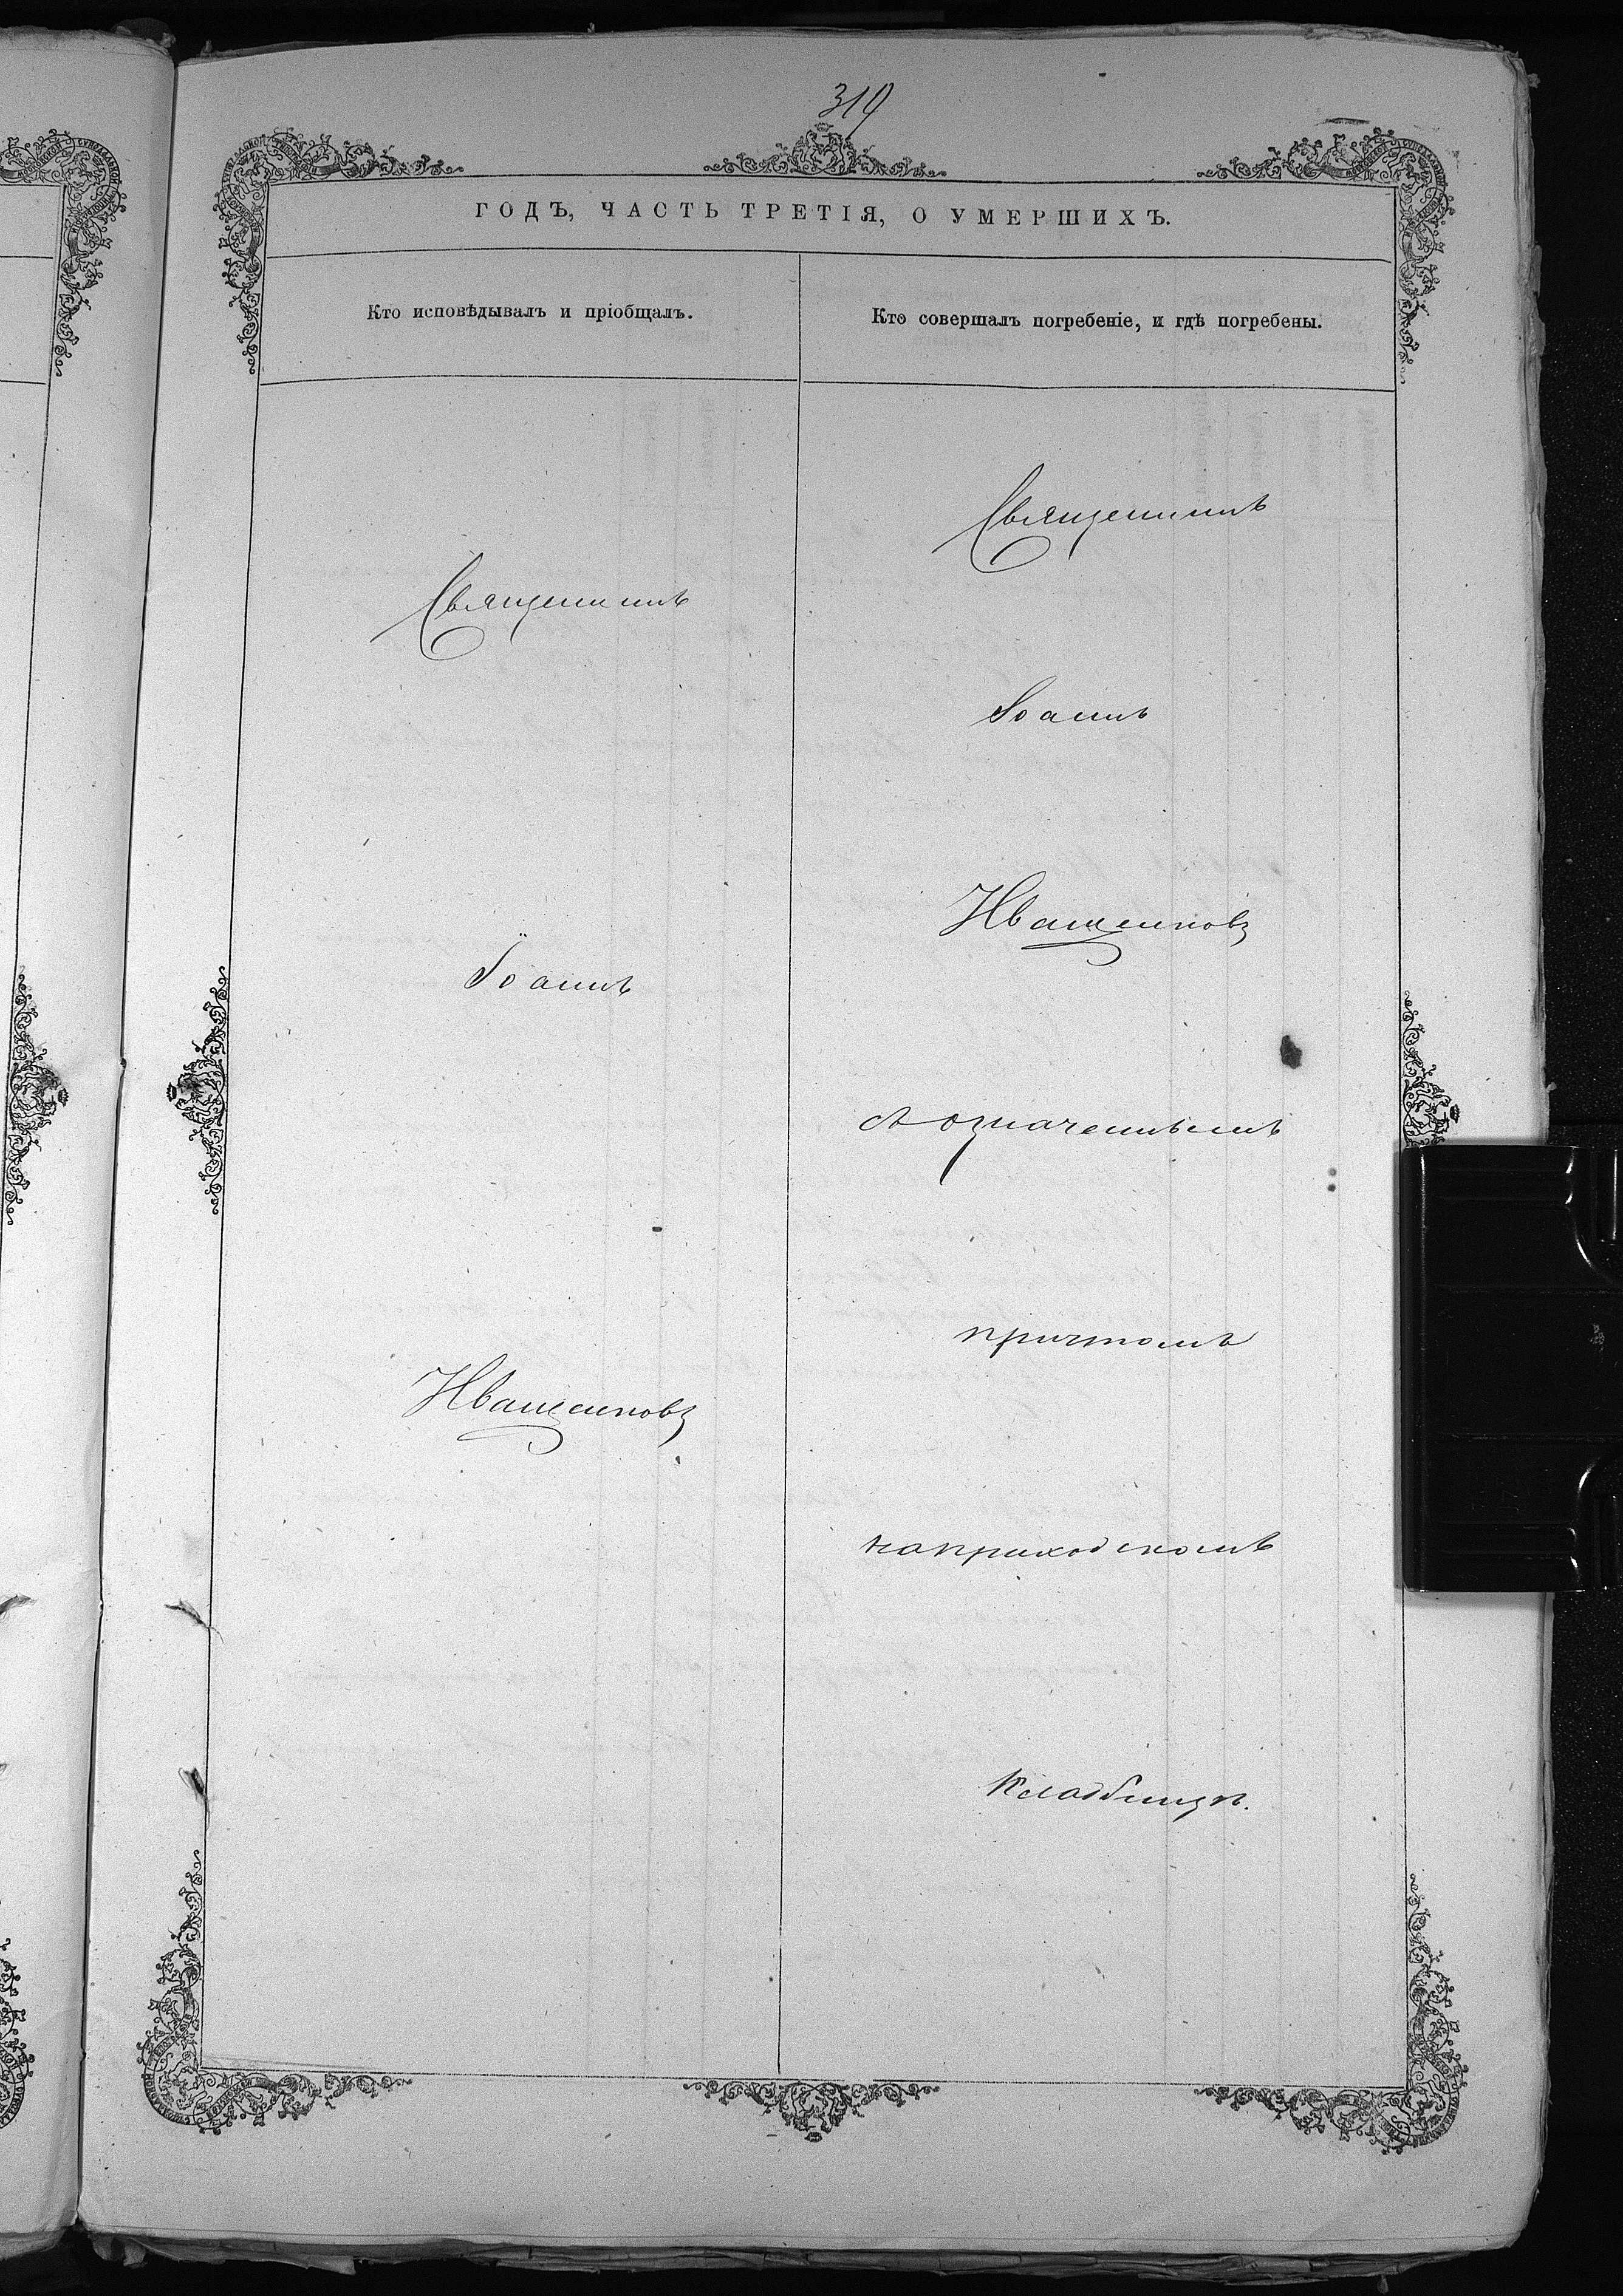 319
ГОДЪ, ЧАСТЬ ТРЕТІЯ, О УМЕРШИХЪ.
Кто исповѣдывалъ и пріобщалъ.
Священникъ
Іоаннъ
Иващенковъ
Кто совершалъ погребеніе, и гдѣ погребены.
Священникъ
Іоаннъ
Иващенковъ
съ означеннымъ
причтомъ
на приходскомъ
кладбищѣ.